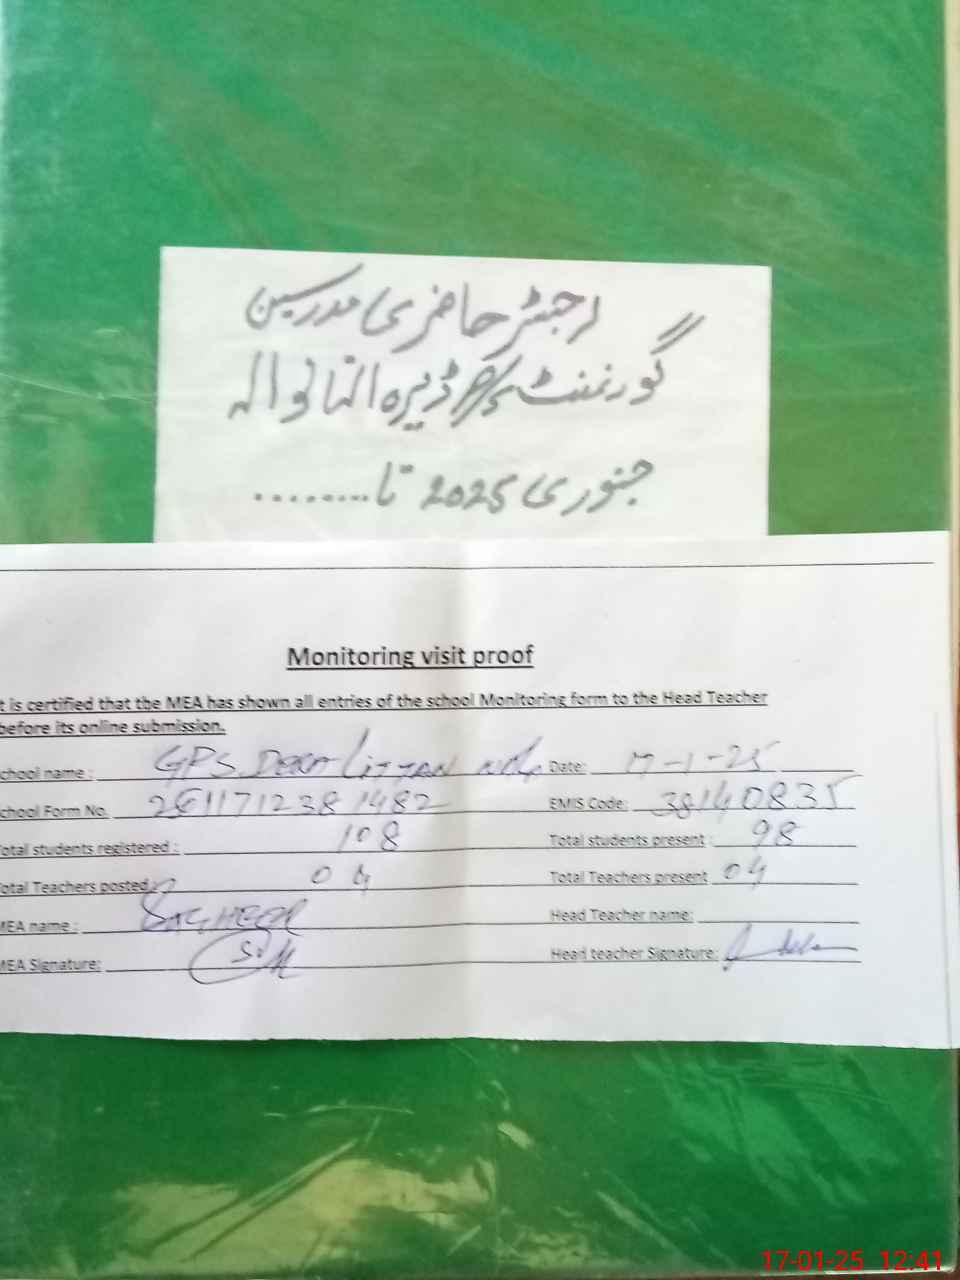 رجسٹر حاضری مدرسین
گورنمنٹ ڈیرہ
جنوری 2025 تا.........
Monitoring visit proof
t is certified that the MEA has shown all entries of the school Monitoring form to the Head Teacher
before its online submission.
chool name : GPS. DERA Date: 17-1-25
chool Form No. EMIS Code: 38140835
otal students registered : 108 Total students present : 98
otal Teachers posted 04 Total Teachers present 04
MEA name : SAGHEER Head Teacher name:
MEA Signature: Head teacher Signature:
17-01-25 12:41